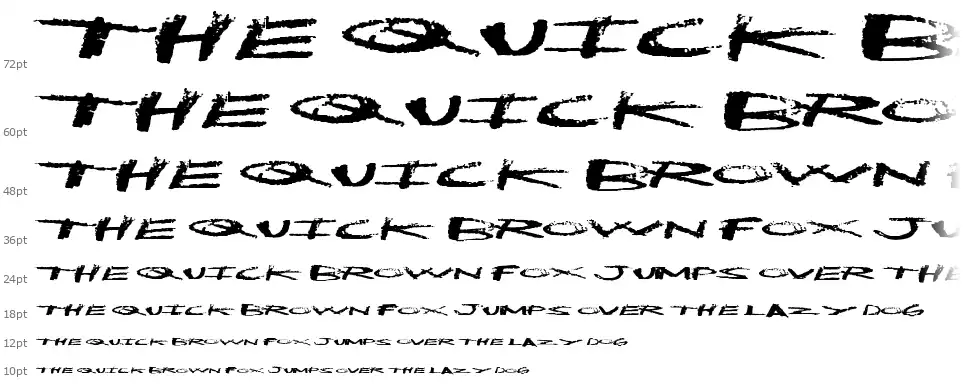 THE QUICK B
72pt
THE QUICK BRO
60pt
THE QUICK BROWN
48pt
THE QUICK BROWN FOX JU
36pt
THE QUICK BROWN FOX JUMPS OVER THE
24pt
THE QUICK BROWN FOX JUMPS OVER THE LAZY DOG
18pt
THE QUICK BROWN FOX JUMPS OVER THE LAZY DOG
12pt
THE QUICK BROWN FOX JUMPS OVER THE LAZY DOG
10pt